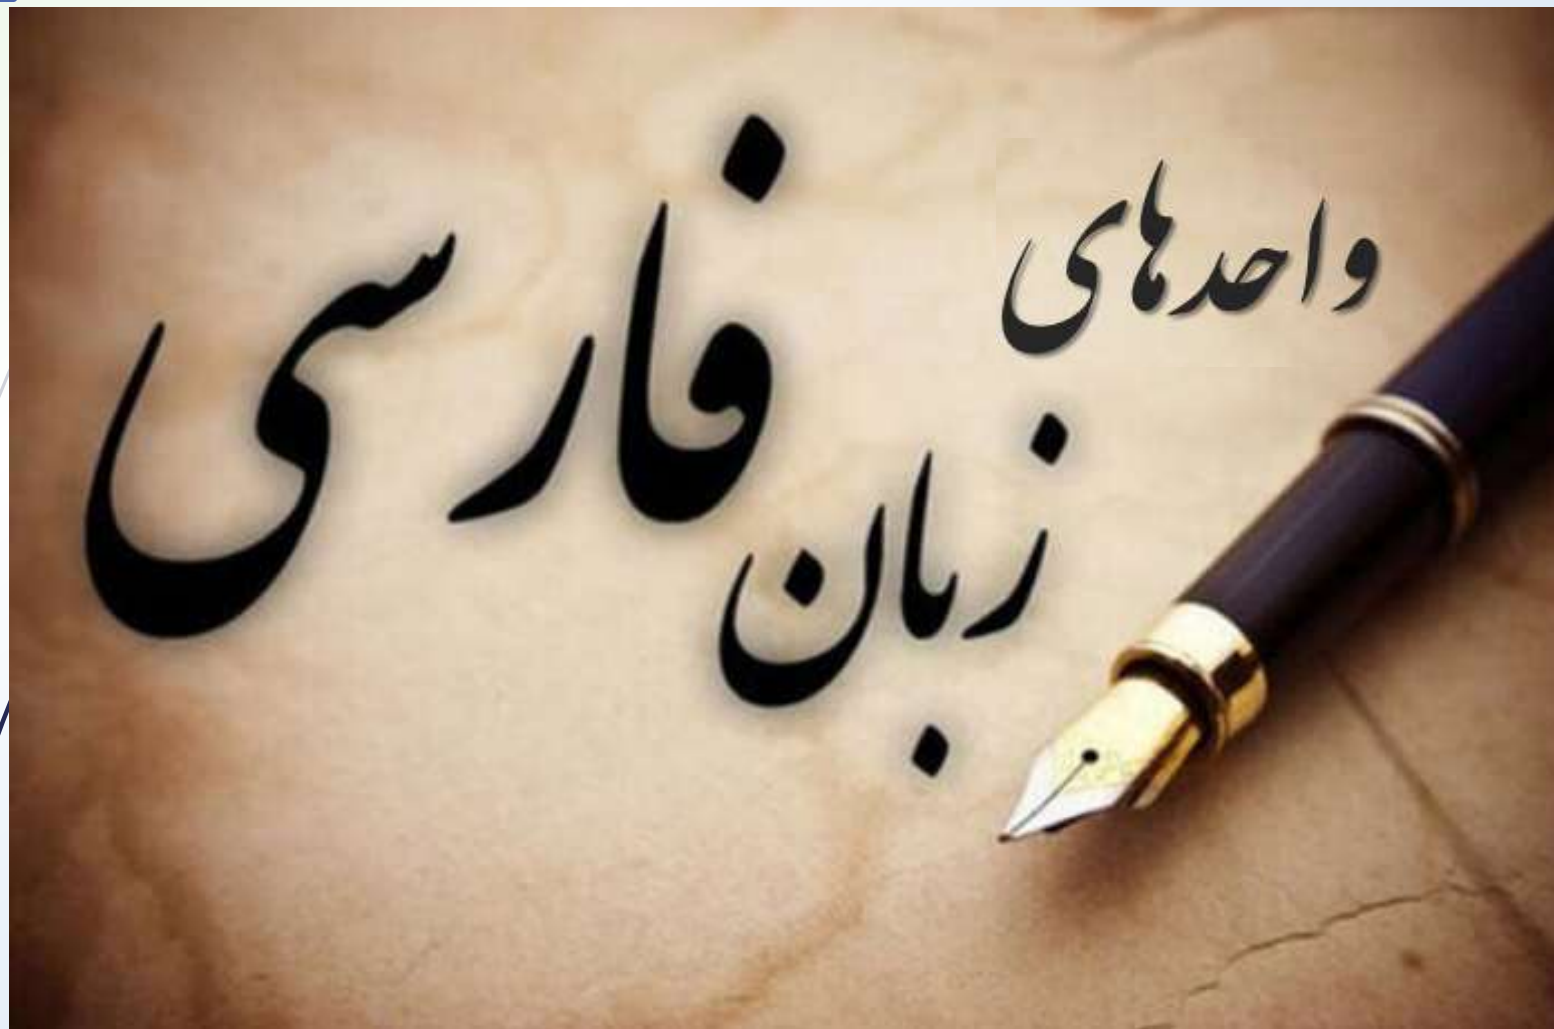 واحدهای
زبان فارسی